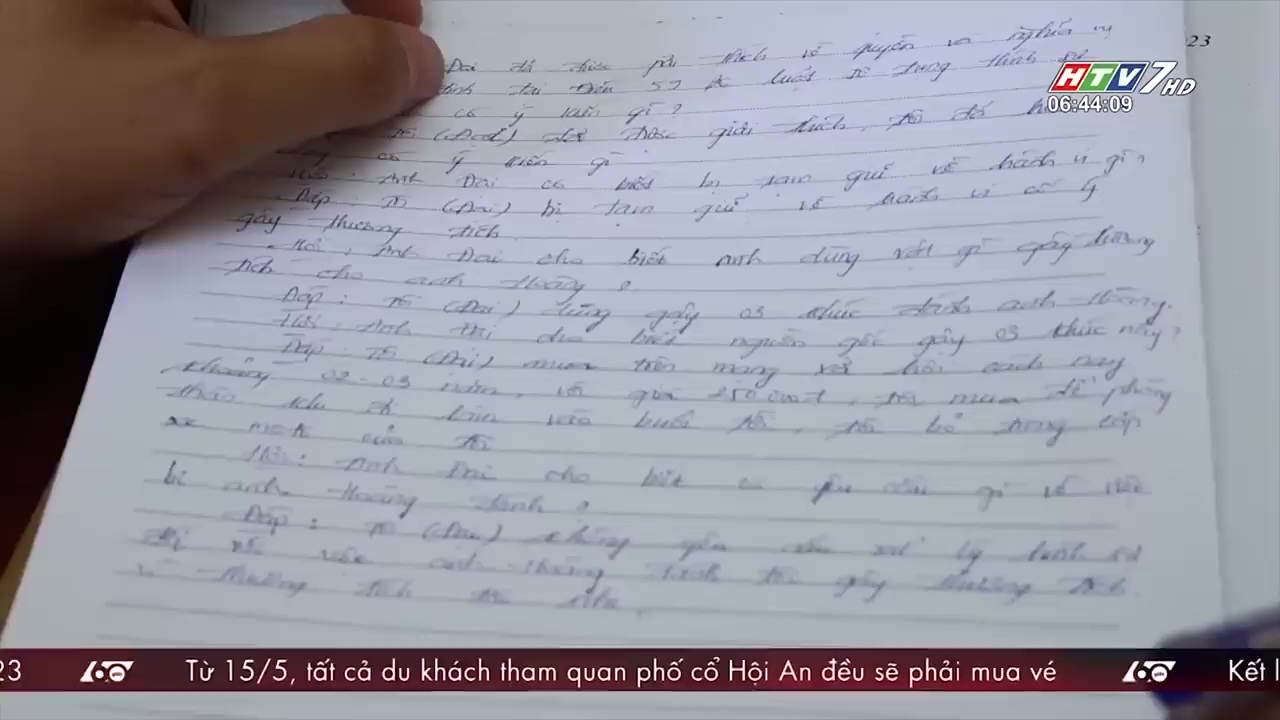 23
HTV7 HD
06:44:09
Đài đã được giải thích về quyền và nghĩa vụ
định tại Điều 59 luật tố tụng hình sự
có ý kiến gì?
Tôi (Đài) đã được giải thích, tôi đã
có ý kiến gì
Hỏi: Anh Đài có biết bị tạm giữ về hành vi gì?
Đáp: Tôi (Đài) bị tạm giữ về hành vi cố ý
gây thương tích
Hỏi: Anh Đài cho biết anh dùng vật gì gây thương
tích cho anh Hoàng?
Đáp: Tôi (Đài) dùng gậy 03 khúc đánh anh Hoàng.
Hỏi: Anh cho biết nguồn gốc gậy 03 khúc này?
Đáp: Tôi (Đài) mua trên mạng xã hội cách nay
khoảng 02-03 năm, với giá, tôi mua để phòng
thân khi đi làm vào buổi tối, tôi bỏ trong cốp
xe của tôi
Hỏi: Anh Đài cho biết có yêu cầu gì về việc
bị anh Hoàng đánh?
Đáp: Tôi (Đài) không yêu cầu xử lý hình sự
việc anh Hoàng đánh tôi gây thương tích
vì thương tích nhẹ.
23 60 giây Từ 15/5, tất cả du khách tham quan phố cổ Hội An đều sẽ phải mua vé 60 giây Kết